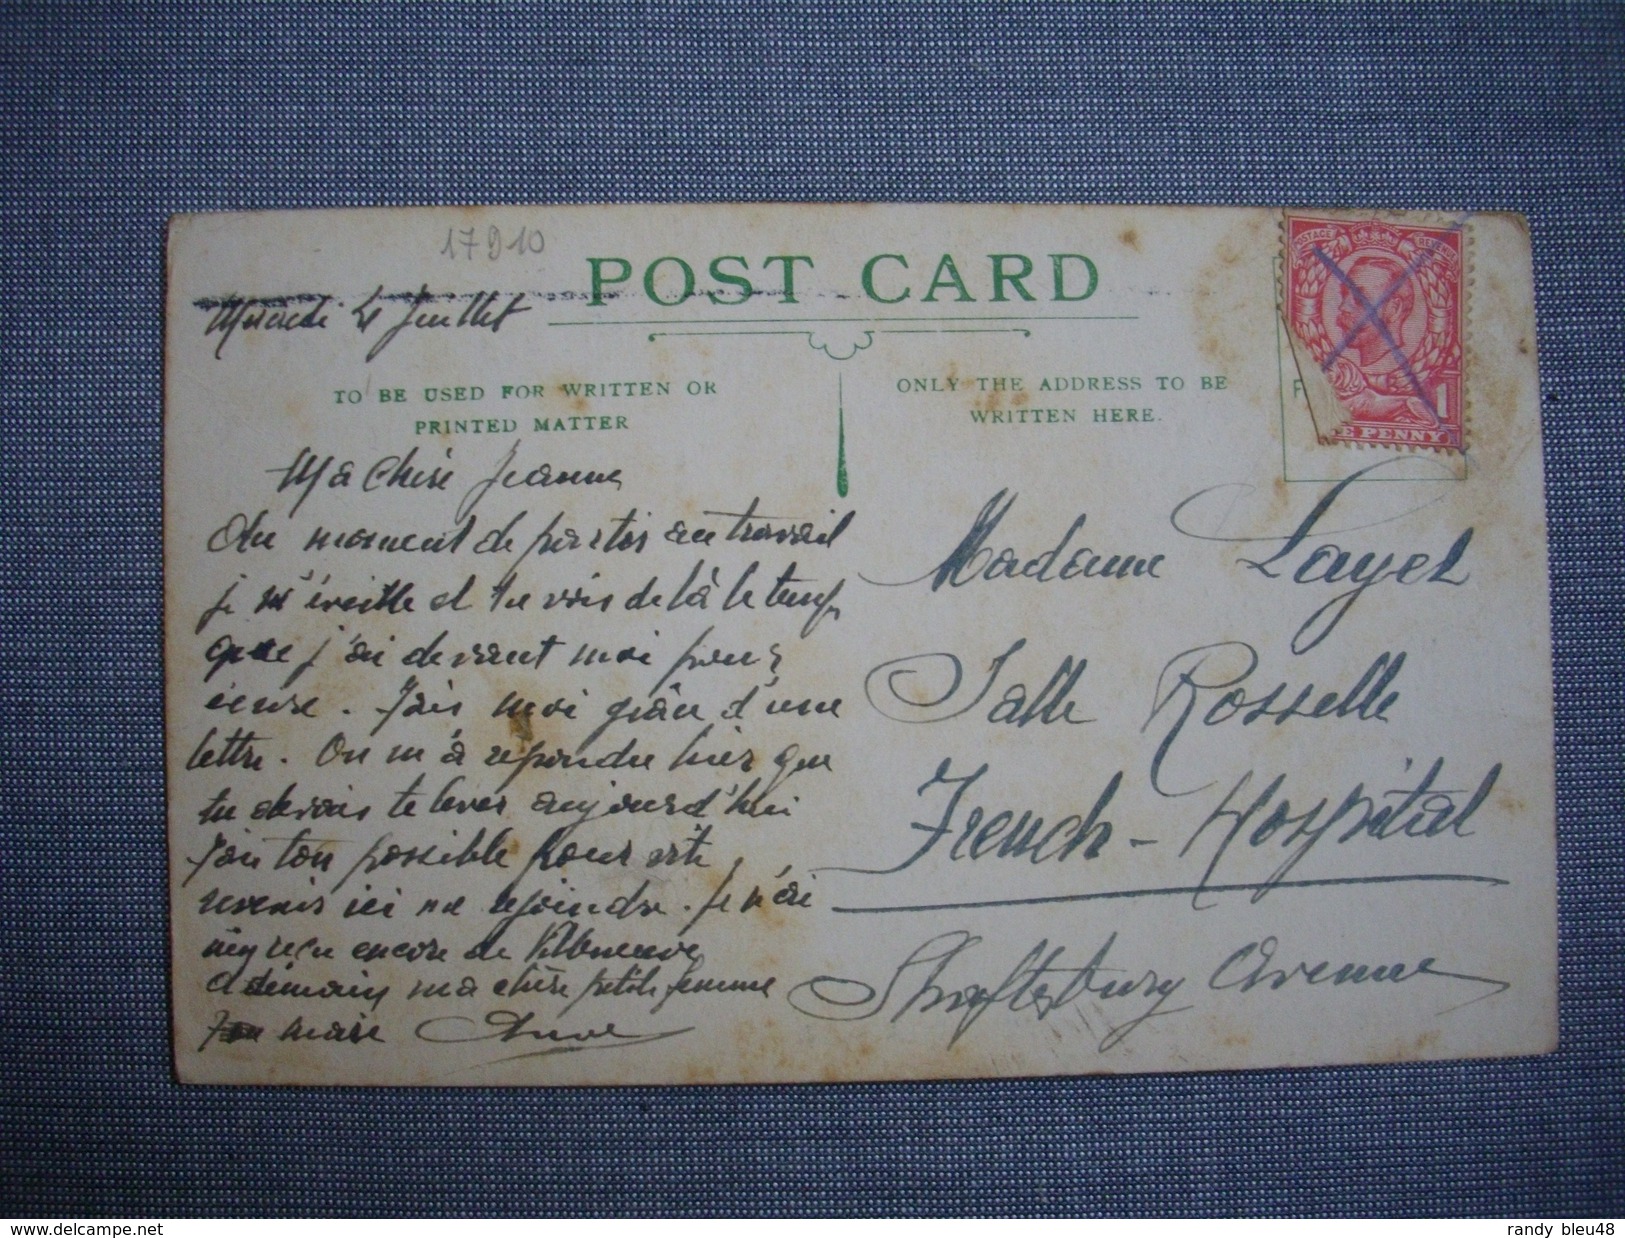 17910
POST CARD
Mercredi 4 Juillet
TO BE USED FOR WRITTEN OR
PRINTED MATTER
ONLY THE ADDRESS TO BE
WRITTEN HERE.
POSTAGE REVENUE
E PENNY
1
Ma chère Jeanne
Au moment de partir au travail
je m'éveille et tu vois de là le temps
que j'ai devant moi pour
écrire. Fais moi grâce d'une
lettre. On m'a répondu hier que
tu devais te lever aujourd'hui
Fais ton possible pour vite
revenir ici me rejoindre. Je n'ai
rien reçu encore de Villeneuve
A demain ma chère petite femme
Ton mari
Madame Layel
Salle Rosselle
French-Hospital
Shaftesbury Avenue
delcampe.net
randy_bleu48